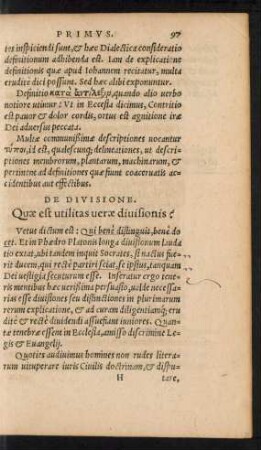 PRIMVS. 97
tes inspiciendi sunt, & hæc Dialectica consideratio
definitionum adhibenda est. Iam de explicatione
definitionis quæ apud Iohannem recitatur, multa
erudite dici possunt. Sed hæc alibi exponuntur.
Definitio κατὰ ἀντίληψιν, quando alio verbo
notiore utimur: Vt in Ecclesia dicimus, Contritio
est pauor & dolor cordis, ortus est agnitione iræ
Dei aduersus peccata.
Multæ communissimæ descriptiones uocantur
τύποι, id est, qualescunq; delineationes, ut descri-
ptiones membrorum, plantarum, machinarum, &
pertinent ad definitiones quæ fiunt coaceruatis ac-
cidentibus aut effectibus.
DE DIVISIONE.
Quæ est utilitas ueræ diuisionis?
Vetus dictum est: Qui benè distinguit, benè do
cet. Et in Phædro Platonis longa diuisionum Lauda
tio extat, ubi tandem inquit Socrates, si nactus fue-
rit ducem, qui rectè partiri sciat, se ipsius, tanquam
Dei uestigia secuturum esse. Inseratur ergo tene-
ris mentibus hæc uerißima persuasio, ualde necessa-
rias esse diuisiones seu distinctiones in plurimarum
rerum explicatione, & ad curam diligentiamq; eru
ditè & rectè diuidendi assuefiant iuniores. Quan-
tæ tenebræ essent in Ecclesia, amisso discrimine Le-
gis & Euangelij.
Quoties audiuimus homines non rudes litera-
rum uituperare iuris Ciuilis doctrinam, & dispu-
H tare,